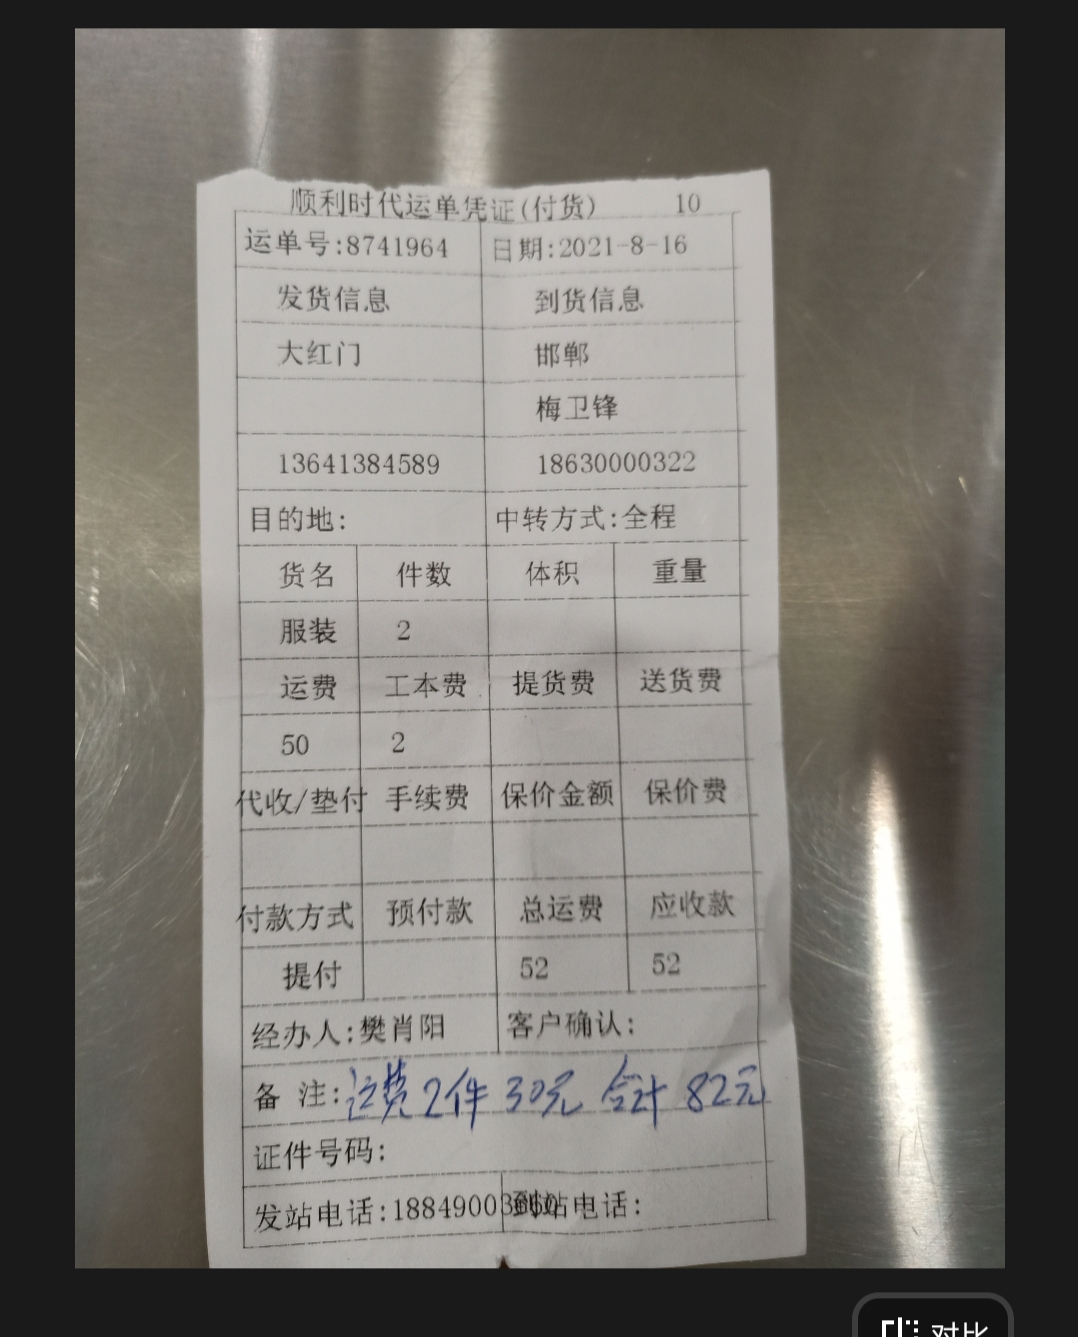 顺利时代运单凭证(付货) 10
运单号:8741964 日期:2021-8-16
发货信息 到货信息
大红门 邯郸
梅卫锋
13641384589 18630000322
目的地: 中转方式:全程
货名 件数 体积 重量
服装 2
运费 工本费 提货费 送货费
50 2
代收/垫付 手续费 保价金额 保价费
付款方式 预付款 总运费 应收款
提付 52 52
经办人:樊肖阳 客户确认:
备 注:运费2件 30元 合计 82元
证件号码:
发站电话:18849003 到站电话:
对比